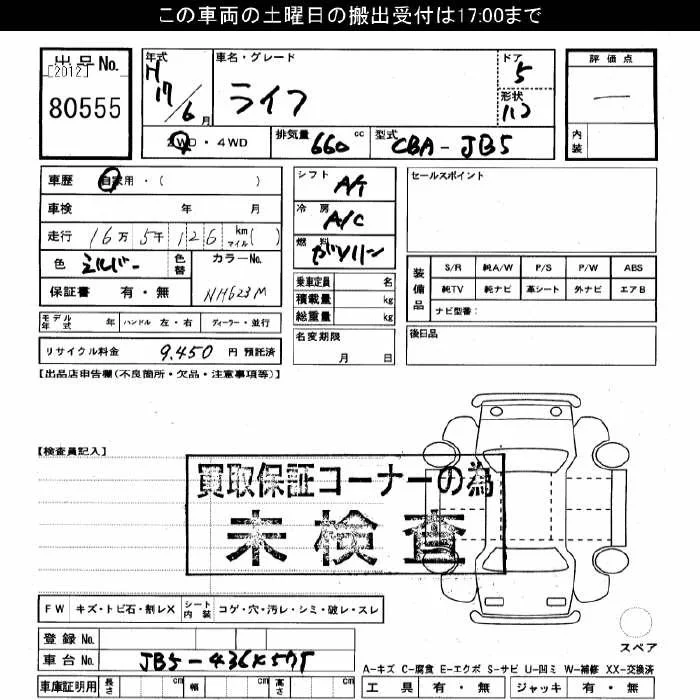 この車両の土曜日の搬出受付は17:00まで
出品No.
[2012]
80555
年式
H
17/6月
車名・グレード
ライフ
ドア
5
形状
ハコ
評価点
一
内装
2WD・4WD
排気量 660 cc
型式 CBA-JB5
車歴 自家用・( )
車検 年 月
走行 16万 5千 126 km マイル( )
色 シルバー
色替
カラーNo.
NH623M
保証書 有・無
モデル年式 年 ハンドル 左・右 ディーラー・並行
リサイクル料金 9,450 円 預託済
シフト A/T
冷房 A/C
燃料 ガソリン
乗車定員 名
積載量 kg
総重量 kg
名変期限
月 日
セールスポイント
装備品
S/R 純A/W P/S P/W ABS
純TV 純ナビ 革シート 外ナビ エアB
ナビ型番:
後日品
【出品店申告欄(不良箇所・欠品・注意事項等)】
【検査員記入】
買取保証コーナーの為
未検査
FW キズ・トビ石・割レX シート内装 コゲ・穴・汚レ・シミ・破レ・スレ
登録No.
車台No.
車庫証明用 長さ cm 幅 cm 高さ cm
スペア
A-キズ C-腐食 E-エクボ S-サビ U-凹ミ W-補修 XX-交換済
工具 有・無 ジャッキ 有・無